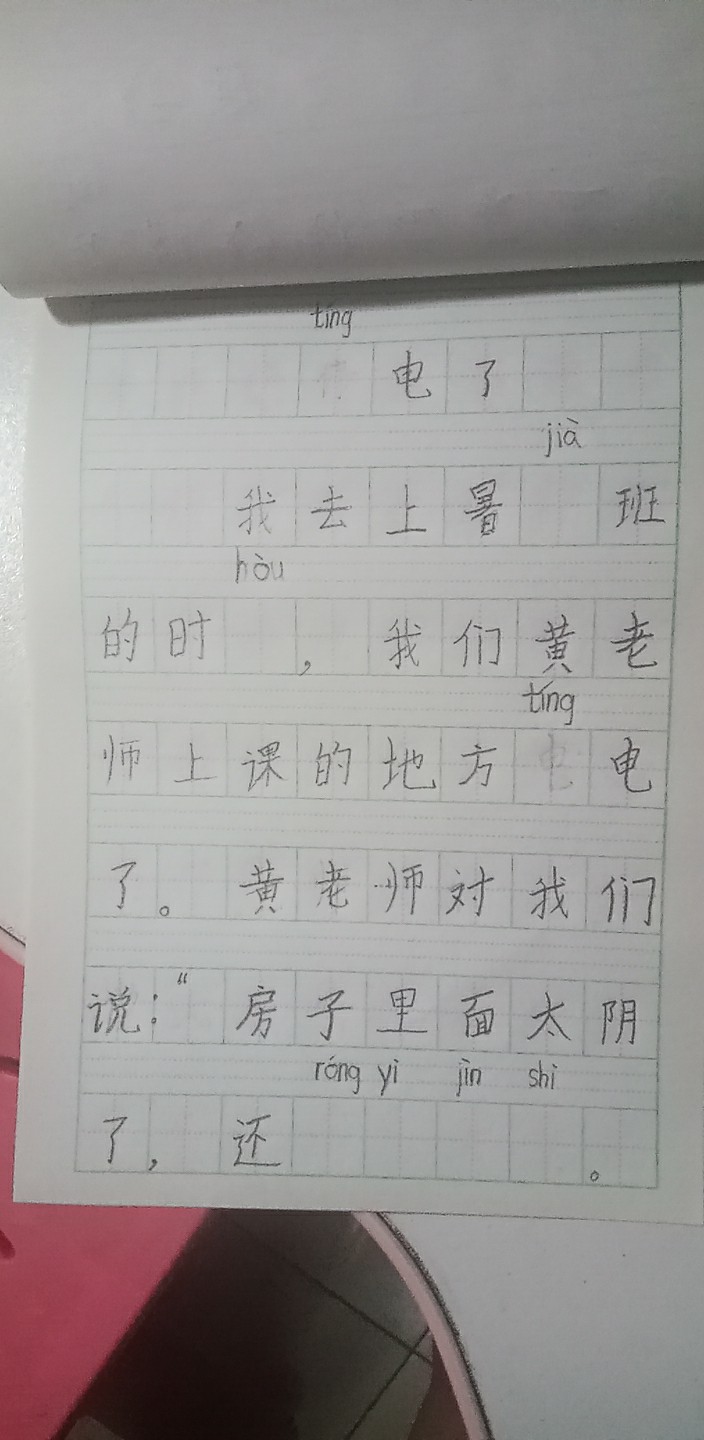 tíng
电了
jià
我去上暑班
hòu
的时，我们黄老
tíng
师上课的地方电
了。黄老师对我们
说：“房子里面太阴
róng yì jìn shì
了，还。